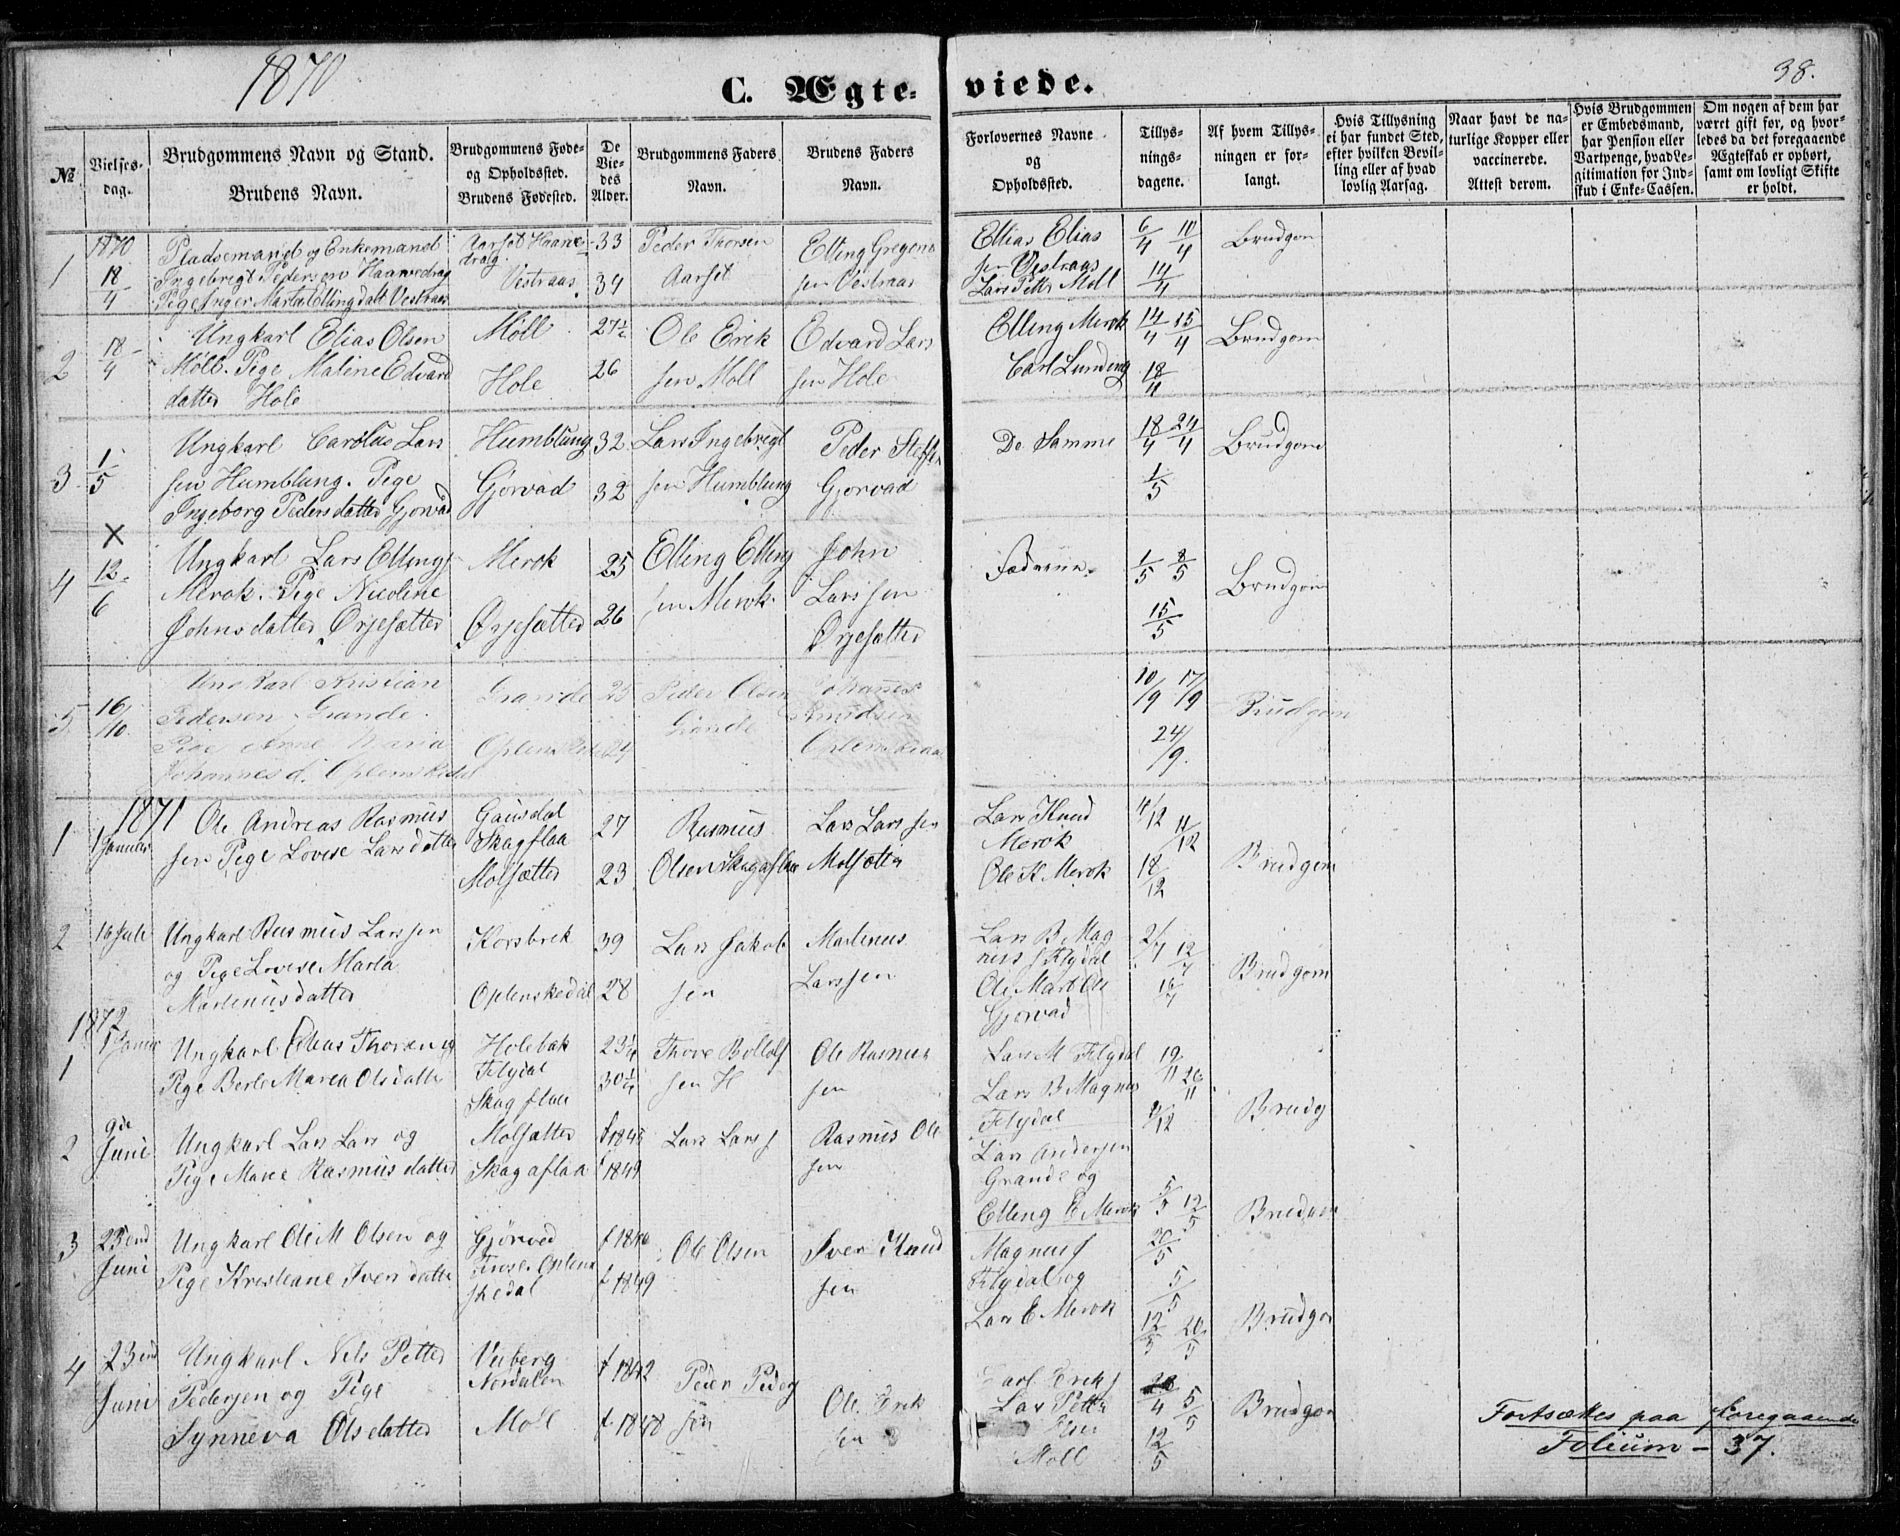 1870
C. Ægte-
viede.
38.
№
Vielses-
dag.
Brudgommens Navn og Stand.
Brudens Navn.
Brudgommens Føde-
og Opholdssted.
Brudens Fødested.
De
Vie-
des
Alder.
Brudgommens Faders
Navn.
Brudens Faders
Navn.
Forlovernes Navne
og
Opholdssted.
Tillys-
nings-
dagene.
Af hvem Tillys-
ningen er for-
langt.
Hvis Tillysning
ei har fundet Sted,
efter hvilken Bevil-
ling eller af hvad
lovlig Aarsag.
Naar havt de na-
turlige Kopper eller
vaccinerede.
Attest derom.
Hvis Brudgommen
er Embedsmand,
har Pension eller
Vartpenge, hvad Le-
gitimation for Ind-
skud i Enke-Cassen.
Om nogen af dem har
været gift før, og hvor-
ledes da det foregaaende
Ægteskab er ophørt,
samt om lovligt Skifte
er holdt.
1
1870
18/4
Pladsemand og Enkemand
Ingebregt Pedersen Haanedrag
Pige Inger Martha Ellingsdatt Vestraas
Aarset Haane-
drag.
Vestraas
33
34
Peder Thorsen
Aarset
Elling Gregers
sen Vestraas
Ellias Elias
sen Vestraas
Lars Petter Moll
6/4 10/4
14/4
Brudgom
2
18/4
Ungkarl Elias Olsen
Möll. Pige Maline Edvard
datter Hole
Möll
Hole
27½
26
Ole Erik
sen Moll
Edvard Lars
sen Hole
Elling Merok
Carl Lunding
14/4 15/4
18/4
Brudgom
3
1/5
Ungkarl Carolus Lars
sen Humblung. Pige
Ingeborg Pedersdatter Gjorvad
Humblung
Gjorvad
32
32
Lars Ingebregt
sen Humblung
Peder Steffen
Gjorvad
De Samme
18/4 24/4
1/5
Brudgom
×
4
12/6
Ungkarl Lars Ellings
Merok. Pige Nicoline
Johnsdatter Ørjesætter
Merok
Ørjesætter
25
26
Elling Elling
sen Merok
John
Larssen
Ørjesætter
Fædrene
1/5 8/5
15/5
Brudgom
5
16/10
Ungkarl Kristian
Pedersen Grande.
Pige Anne Maria
Johannesd. Oplenskedal
Grande
Oplenskedal
25
24
Peder Olsen
Grande
Johannes
Knudsen
10/9 17/9
24/9
Brudgom
1871
1
1 Januar
Ole Andreas Rasmus
sen Pige Lovise Larsdatter
Gausdal
Skagflaa
Molsætter
27
23
Rasmus
Olsen Skagaflaa
Lars Larssen
Molsætter
Lars Knud
Merok
Ole K Merok
4/12 11/12
18/12
Brudgom
2
16 Juli
Ungkarl Rasmus Larssen
og Pige Lovise Maria
Martinusdatter
Korsbrek
Oplenskedal
39
28
Lars Jakob
sen
Martinus
Larssen
Lars B. Mag
nus s Flydal
Ole Mart Ols
Gjorvad
2/7 12/7
16/7
Brudgom
1872
1
1 Januar
Ungkarl Elias Thorsen og
Pige Berte Maria Olsdatter
Holebak
Flydal
Skagflaa
23¼
30¼
Thore Bottolf
sen H
Ole Rasmus
sen
Lars M Flydal
Lars B Magnus
Flydal
19/11 26/11
2/12
Brudg
2
9de
Juni
Ungkarl Lars Lars og
Pige Marie Rasmusdatter
Molsætter
Skagaflaa
f 1849
Lars Lars s
Rasmus Ole
sen
Lars Andersen
Grande og
Elling E Merok
5/5 12/5
20/5
Brudgom
3
23end
Juni
Ungkarl Ole M Olsen og
Pige Kristiane Iversdatter
Gjörved
Oplens
skedal
f 1849
Ole Olsen
Iver Knud
sen
Magnus s
Flydal og
Lars E Merok
5/5
12/5 20/5
Brudgom
4
23end
Juni
Ungkarl Nils Petter
Pedersen og Pige
Synneva Olsdatter
Viiberg
Nordalen
Moll
f 1842
f 1848
Peder Peders
sen
Ole Erik
sen
Karl Eriks
Lars Petter
Moll
28/4 5/5
12/5
Brudgom
Fortsættes paa foregaaende
Folium – 37.